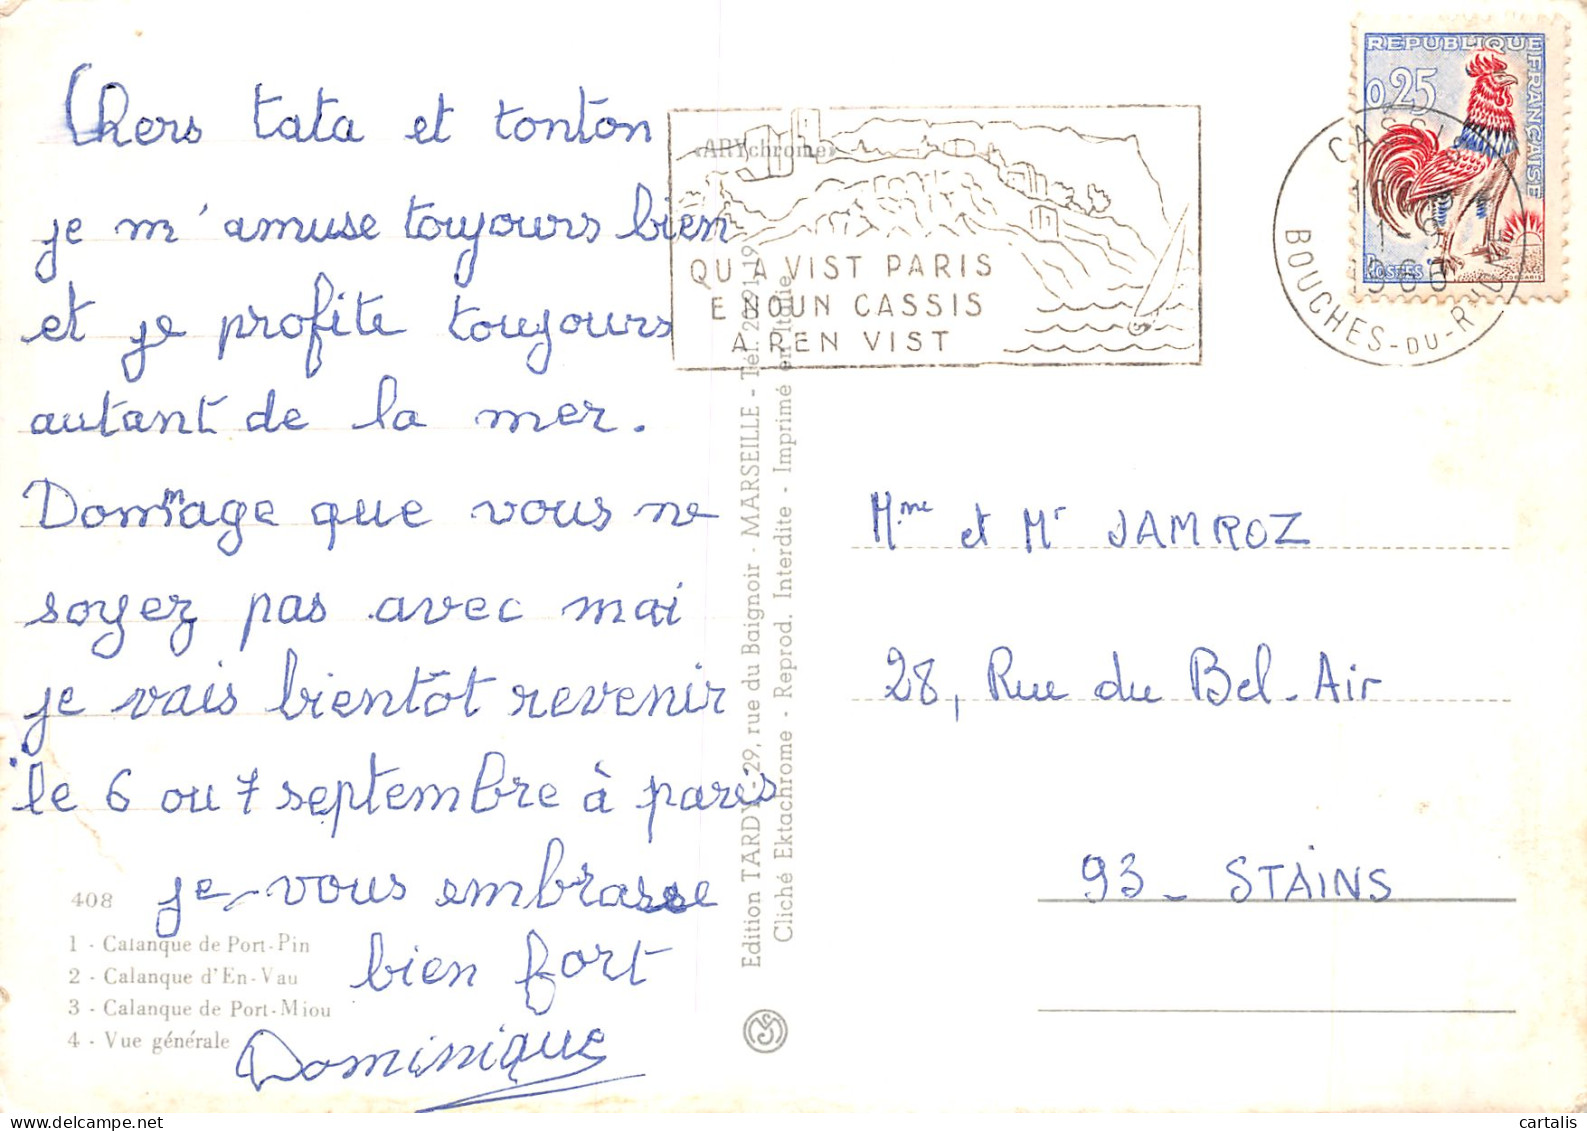 Chers tata et tonton
je m'amuse toujours bien
et je profite toujours
autant de la mer.
Dommage que vous ne
soyez pas avec mai
je vais bientôt revenir
le 6 ou 7 septembre à paris
je vous embrasse
bien fort
Dominique
408
1 - Calanque de Port-Pin
2 - Calanque d'En-Vau
3 - Calanque de Port-Miou
4 - Vue générale
Edition TARDY - 29, rue du Baignoir - MARSEILLE - Tél.
Cliché Ektachrome - Reprod. Interdite - Imprimé en Italie
«ARYchrome»
QU A VIST PARIS
E NOUN CASSIS
A REN VIST
REPUBLIQUE FRANÇAISE
0,25
POSTES
CASSIS
BOUCHES-DU-RHONE
Mme et Mr JAMROZ
28, Rue du Bel-Air
93 - STAINS
cartalis